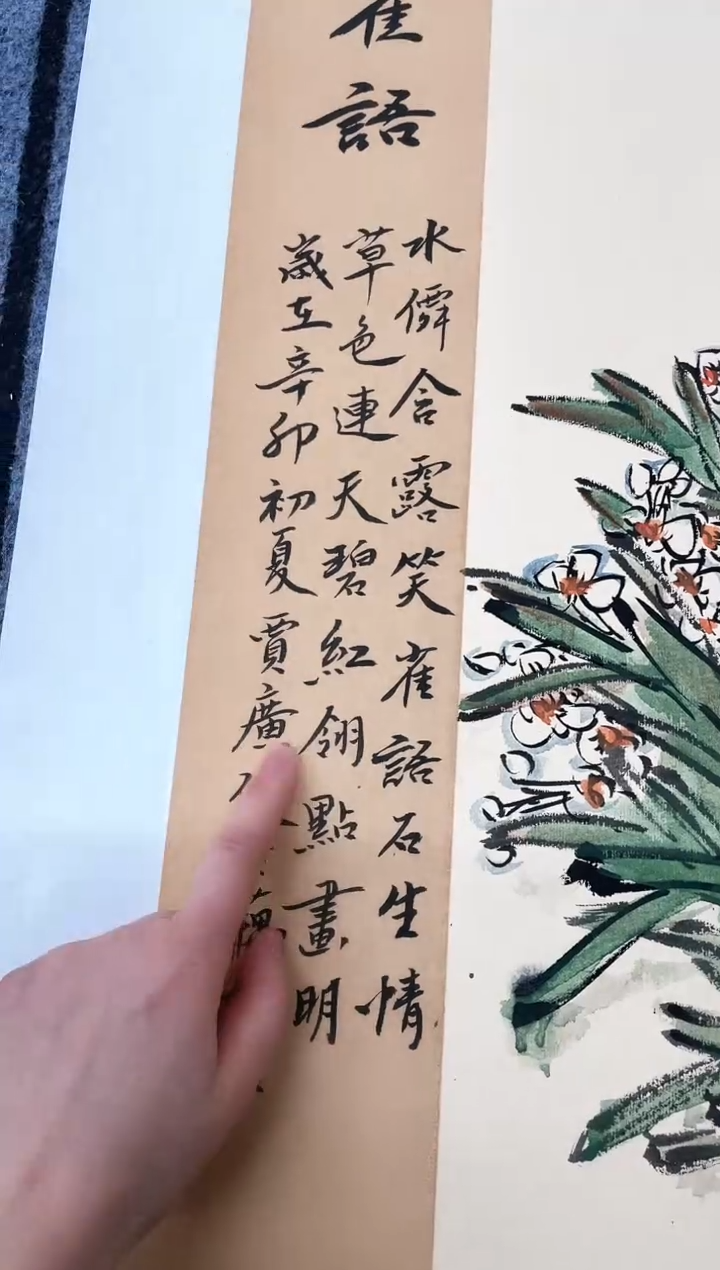 雀語
水僊含露笑雀語石生情
草色連天碧紅翎點畫明
歲在辛卯初夏賈廣